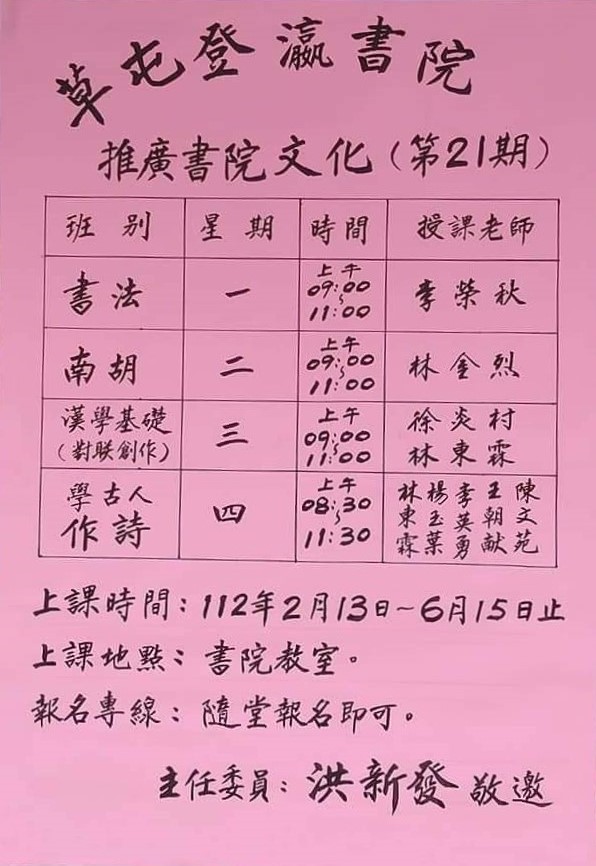 草屯登瀛書院
推廣書院文化(第21期)
班別 星期 時間 授課老師
書法 一 上午09:00~11:00 李榮秋
南胡 二 上午09:00~11:00 林金烈
漢學基礎(對联創作) 三 上午09:00~11:00 徐炎村 林東霖
學古人作詩 四 上午08:30~11:30 林東霖 楊玉葉 李英勇 王朝献 陳文苑
上課時間:112年2月13日~6月15日止
上課地點:書院教室。
報名專線:隨堂報名即可。
主任委員:洪新發 敬邀